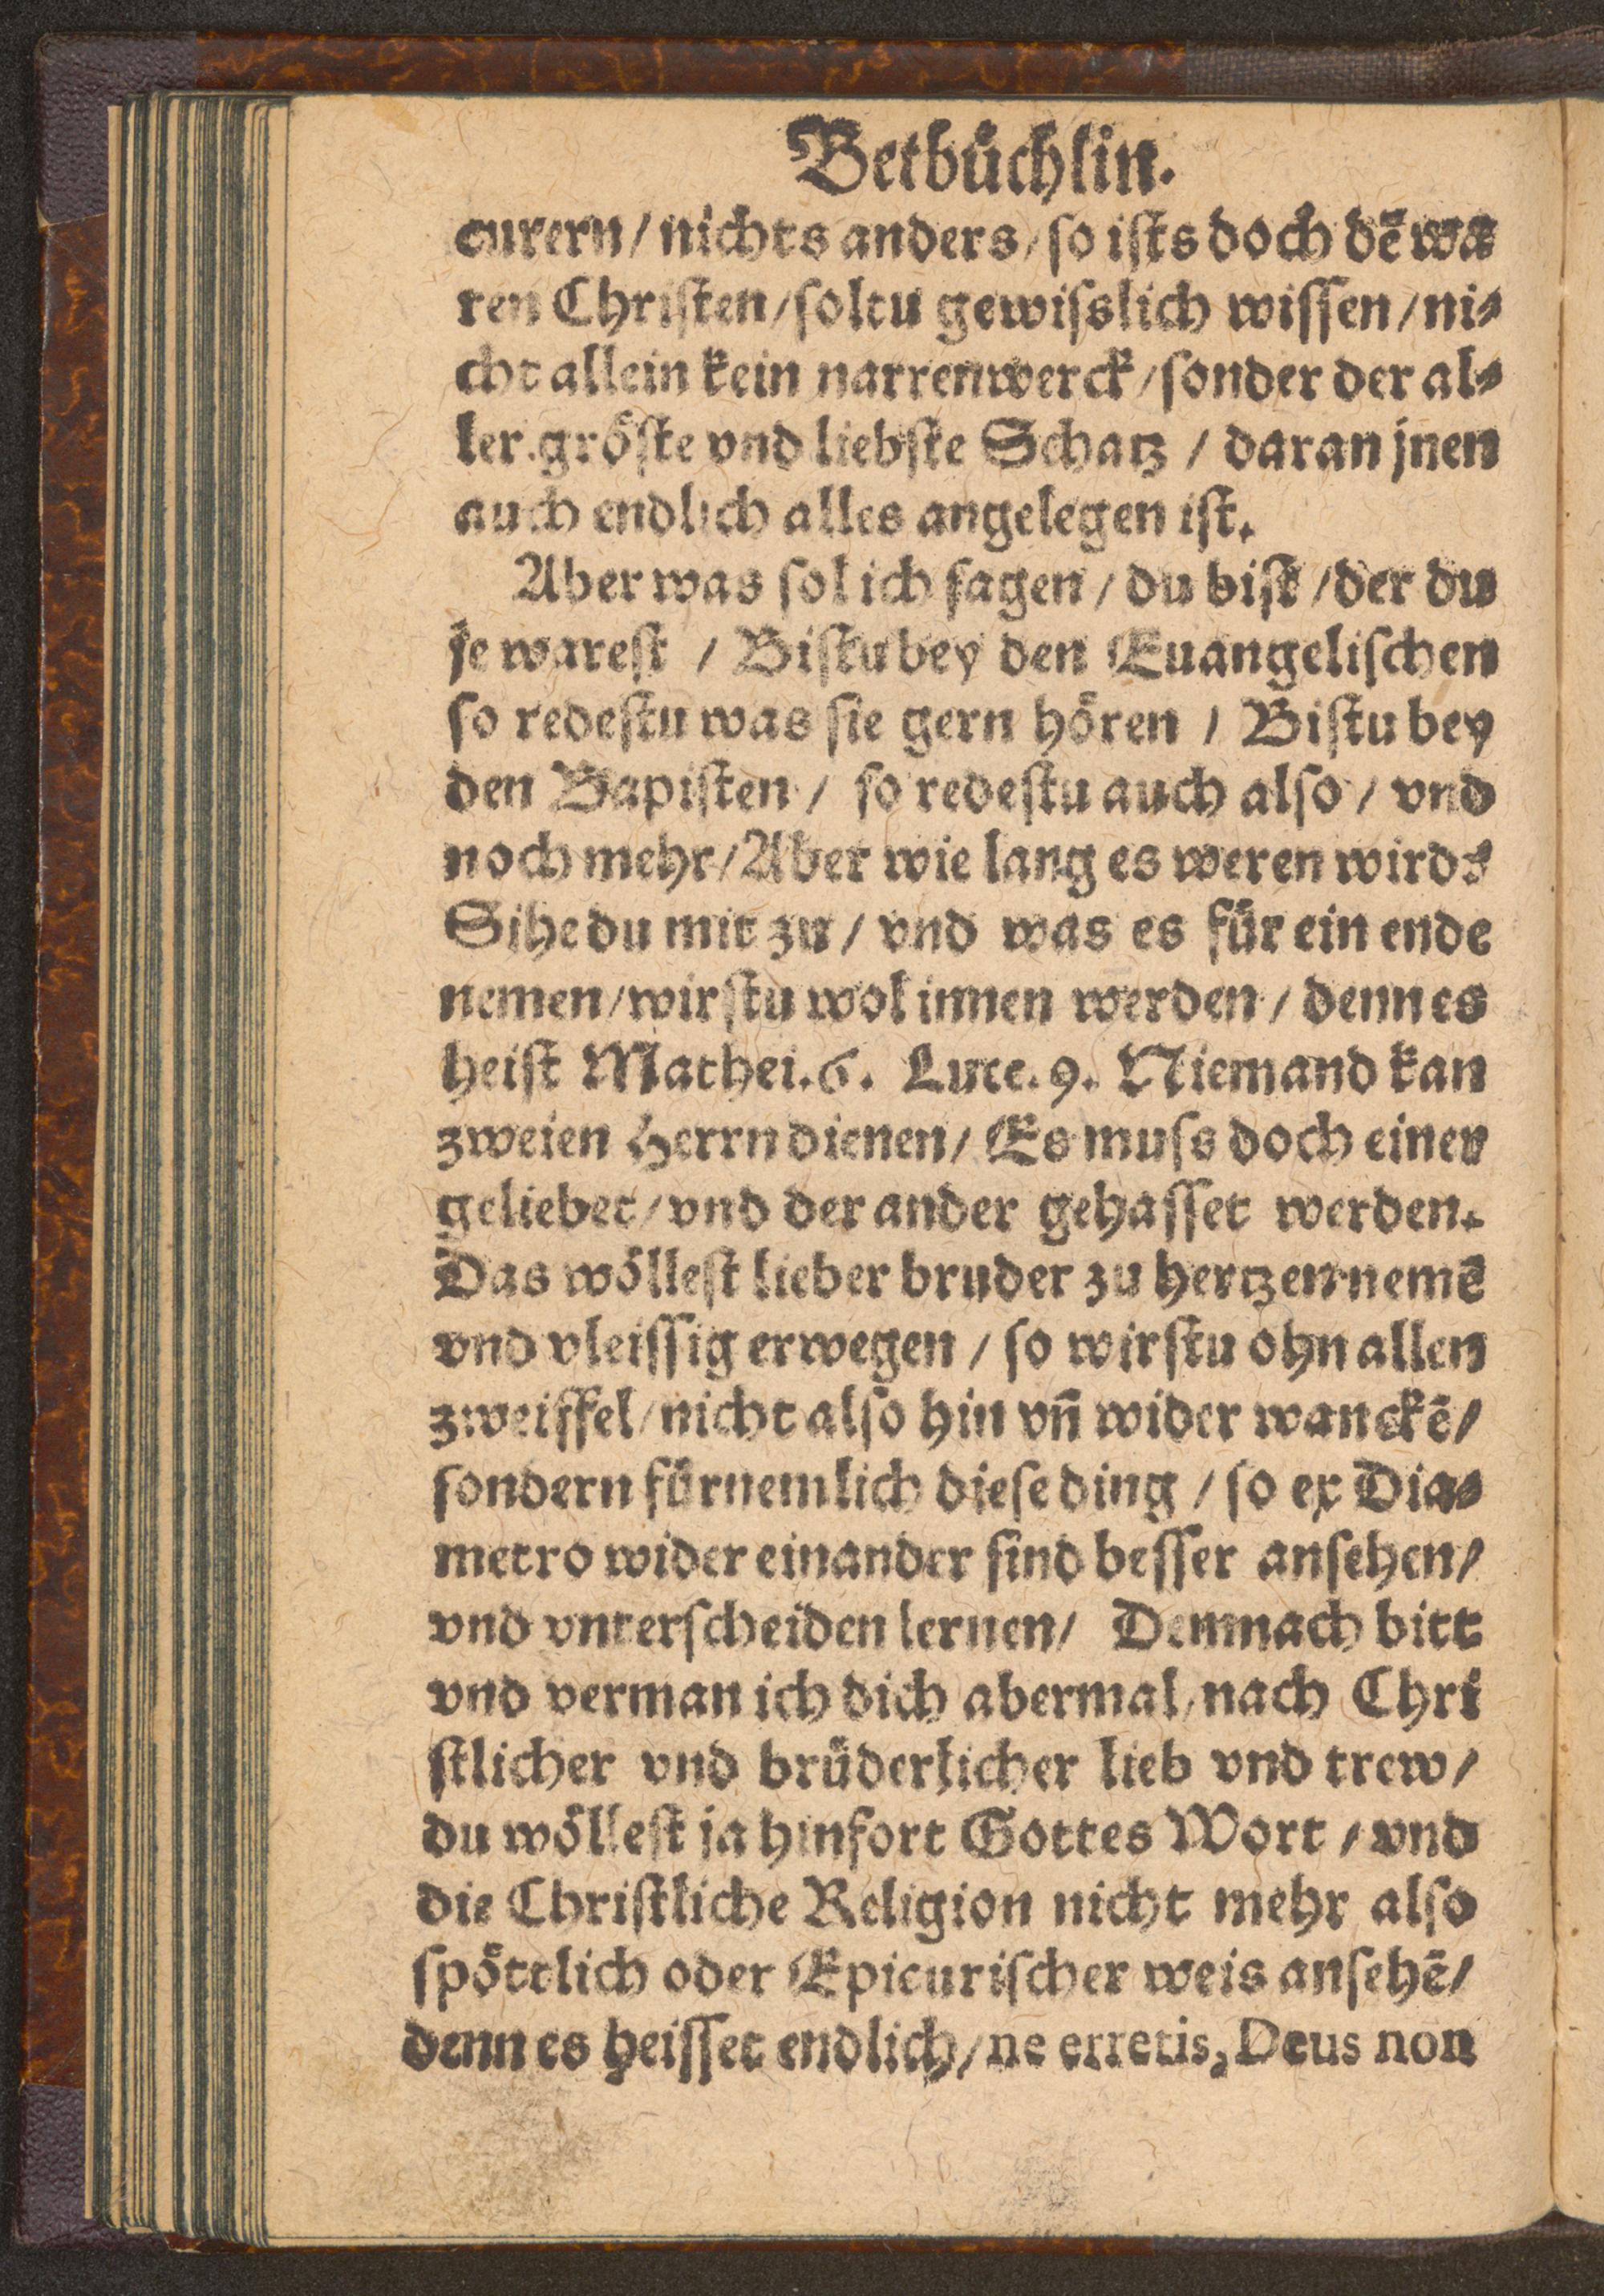 Betbüchlin.
curern / nichts anders / so ists doch dē wa
ren Christen / soltu gewisslich wissen / ni⸗
cht allein kein narrenwerck / sonder der al⸗
ler gröste vnd liebste Schatz / daran jnen
auch endlich alles angelegen ist.
Aber was sol ich sagen / du bist / der du
je warest / Bistu bey den Euangelischen
so redestu was sie gern hören / Bistu bey
den Bapisten / so redestu auch also / vnd
noch mehr / Aber wie lang es weren wird?
Sihe du mit zu / vnd was es für ein ende
nemen / wirstu wol innen werden / denn es
heist Mathei. 6. Luce. 9. Niemand kan
zweien Herrn dienen / Es muss doch einer
geliebet / vnd der ander gehasset werden.
Das wöllest lieber bruder zu hertzen nemē
vnd vleissig erwegen / so wirstu ohn allen
zweiffel / nicht also hin vn̄ wider wanckē /
sondern fürnemlich diese ding / so ex Dia⸗
metro wider einander sind besser ansehen /
vnd vnterscheiden lernen / Demnach bitt
vnd verman ich dich abermal / nach Chri
stlicher vnd brüderlicher lieb vnd trew /
du wöllest ja hinfort Gottes Wort / vnd
die Christliche Religion nicht mehr also
spöttlich oder Epicurischer weis ansehē /
denn es heisset endlich / ne erretis, Deus non